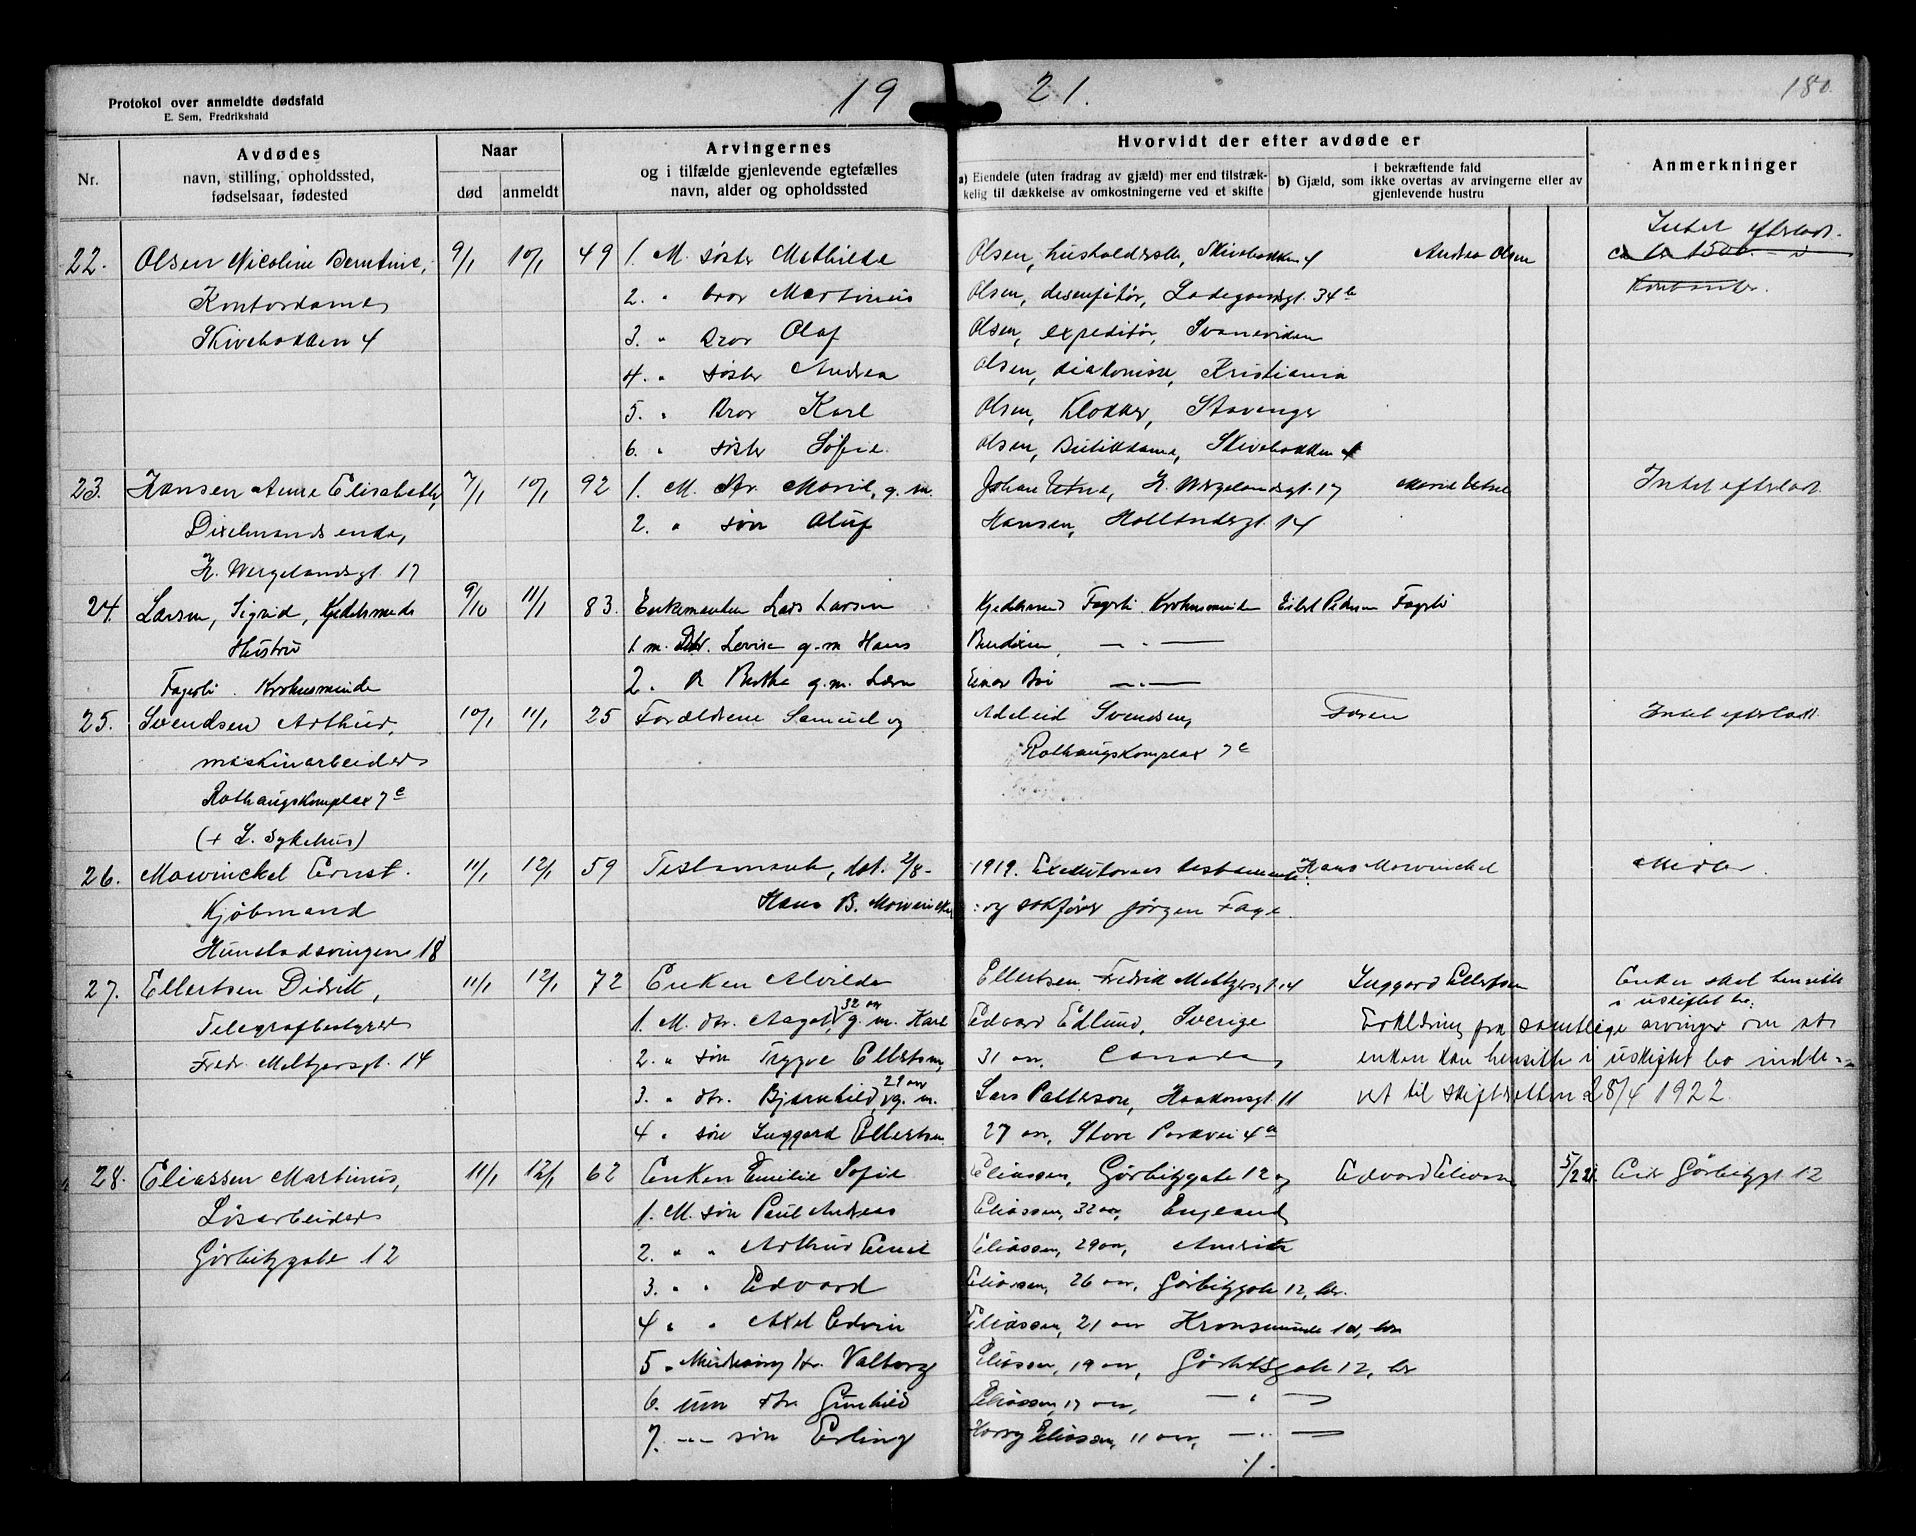 Protokol over anmeldte dødsfald
E. Sem, Fredrikshald
19 21.
180.
Nr.
Avdødes
navn, stilling, opholdssted,
fødselsaar, fødested
Naar
død anmeldt
Arvingernes
og i tilfælde gjenlevende egtefælles
navn, alder og opholdssted
Hvorvidt der efter avdøde er
a) Eiendele (uten fradrag av gjæld) mer end tilstræk-
kelig til dækkelse av omkostningerne ved et skifte
i bekræftende fald
b) Gjæld, som ikke overtas av arvingerne eller av
gjenlevende hustru
Anmerkninger
Intet efterladt.
22. Olsen Nicoline Berntine, 9/1 10/1 49 1. M. søster Mathilde Olsen, husholderske, Skivebakken 4 Andrea Olsen
Kontordame 2. " bror Martinius Olsen, desenfitør, Ladegaardsgt. 34 b
Skivebakken 4 3. " Bror Olaf Olsen, expeditør, Svaneviden
4. " søster Andrea Olsen, diakonisse, Kristiania
5. " Bror Karl Olsen, Klokker, Stavanger
6. " søster Sofie Olsen, Butikdame, Skivebakken 4
23. Hansen Anne Elisabeth, 7/1 10/1 92 1. M. dtr. Marie, g. m. Johan Utne, H. Wergelandsgt. 17 Marie Utne Intet efterladt.
Dixelmands enke, 2. " søn Oluf Hansen, Hollendergt. 14
H. Wergelandsgt. 17
24. Larsen, Sigrid, Kjedelsmeds 9/10 11/1 83. Enkemanden Lars Larsen Kjedelsmed Fagerli Krohnsminde Eilert Pedersen Fagerli
Hustru 1 m. Dtr. Lovise g. m Hans Bendixen, — " —
Fagerli. Krohnsminde 2. " D Berthe g. m. Lærer Einar Bøe — " —
25. Svendsen Arthur, 10/1 11/1 25 Forældrene Samuel og Adeleid Svendsen, Faren Intet efterladt.
maskinarbeider Rothaugskomplex 7 c
Rothaugskomplex 7 c
(+ L. Sykehus)
26. Mowinckel Ernst. 11/1 12/1 59 Testamente, dat. 2/8- 1919. Executorer testamenti: Hans Mowinckel Midler.
Kjøbmand Hans B. Mowinckel og sakfører Jørgen Fage.
Hunstadsvingen 18
27. Ellertsen Didrik, 11/1 12/1 72 Enken Alvilde Ellertsen Fredrik Meltzersgt. 14 Inggard Ellertsen Enken skal hensitte
i uskiftet bo.
Telegrafbestyrer 1. M. dtr. Aagot, 32 aar g. m. Karl Edvard Edlund, Sverige Erklæring fra samtlige arvinger om at
Fredr. Meltzersgt. 14 2. " søn Trygve Ellertsen, 31 aar, Canada, enken kan hensitte i uskiftet bo indle-
3. " dtr. Bjarnhild, 29 aar g. m. Lars Patterson, Haakonsgt. 11 vet til skifteretten 28/4 1922.
4. " søn Inggard Ellertsen 27 aar, Store Parkvei 4 a
28. Eliassen Martinus, 11/1 12/1 62 Enken Emilie Sofie Eliassen, Gørbitzgate 12 og Edvard Eliassen 5/2 21. Gørbitzgt 12
Løsarbeider 1. M. søn Paul Andreas Eliassen, 32 aar, England
Gørbitzgate 12 2. " " Arthur Ernst Eliassen, 29 aar, Amerika
3. " " Edvard Eliassen, 26 aar, Gørbitzgate 12, her.
4. " " Axel Edvin Eliassen, 21 aar Kronsminde 1 d, her
5. " Mindreaarig dtr. Valborg Eliassen, 19 aar, Gørbitzgate 12, her
6. um dtr. Gunhild Eliassen, 17 aar, — " —
7. — " — søn Erling Harry Eliassen, 11 aar, — " —
./.